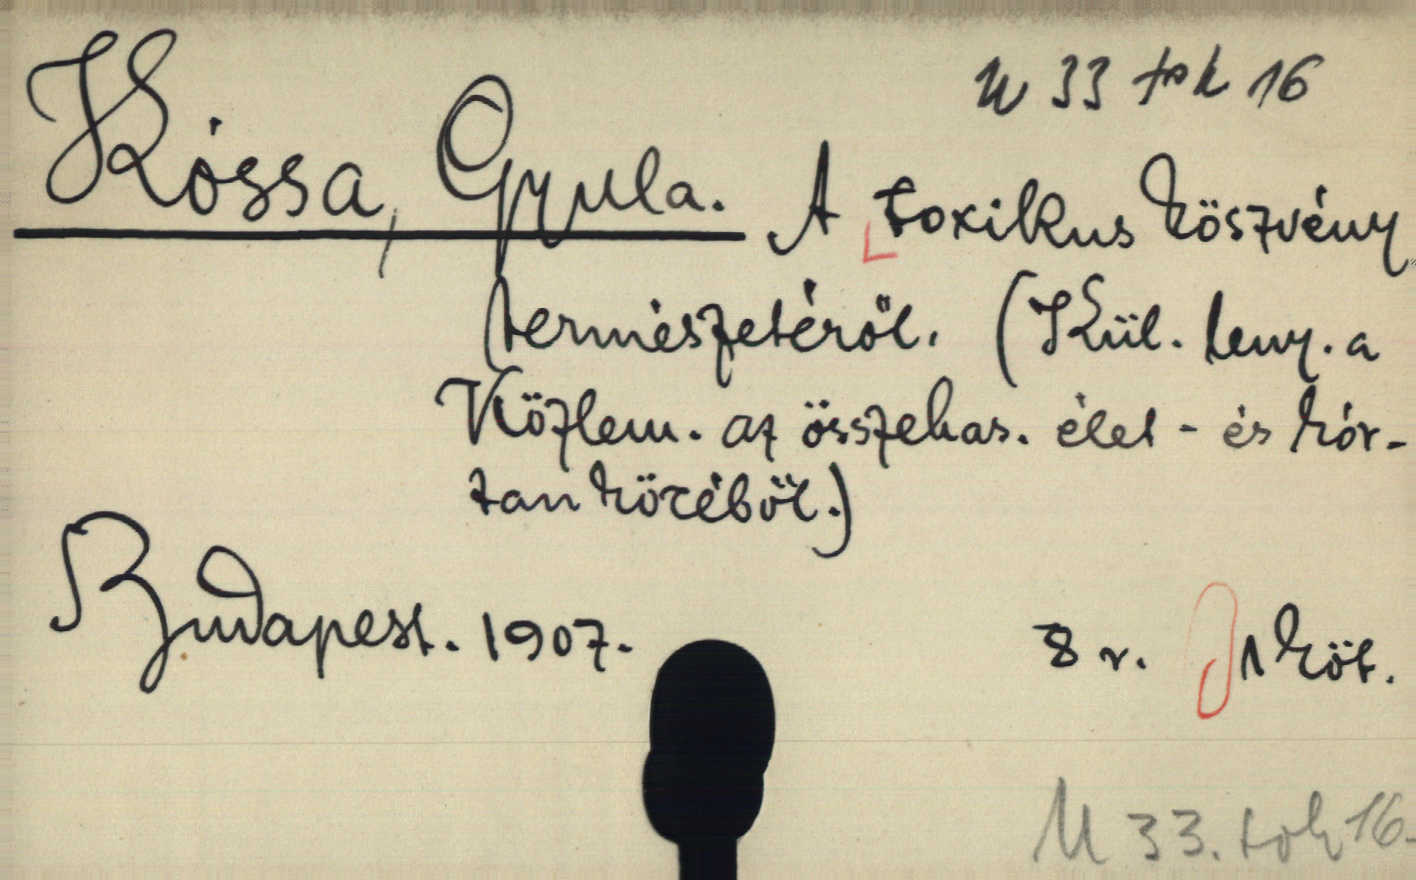 U 33 tok 16
Kóssa, Gyula. A toxikus köszvény
természetéről. (Kül. leny. a
Közlem. az összehas. élet- és kór-
tan köréből.)
Budapest. 1907. 8 r. 1 köt.
U 33. tok 16.